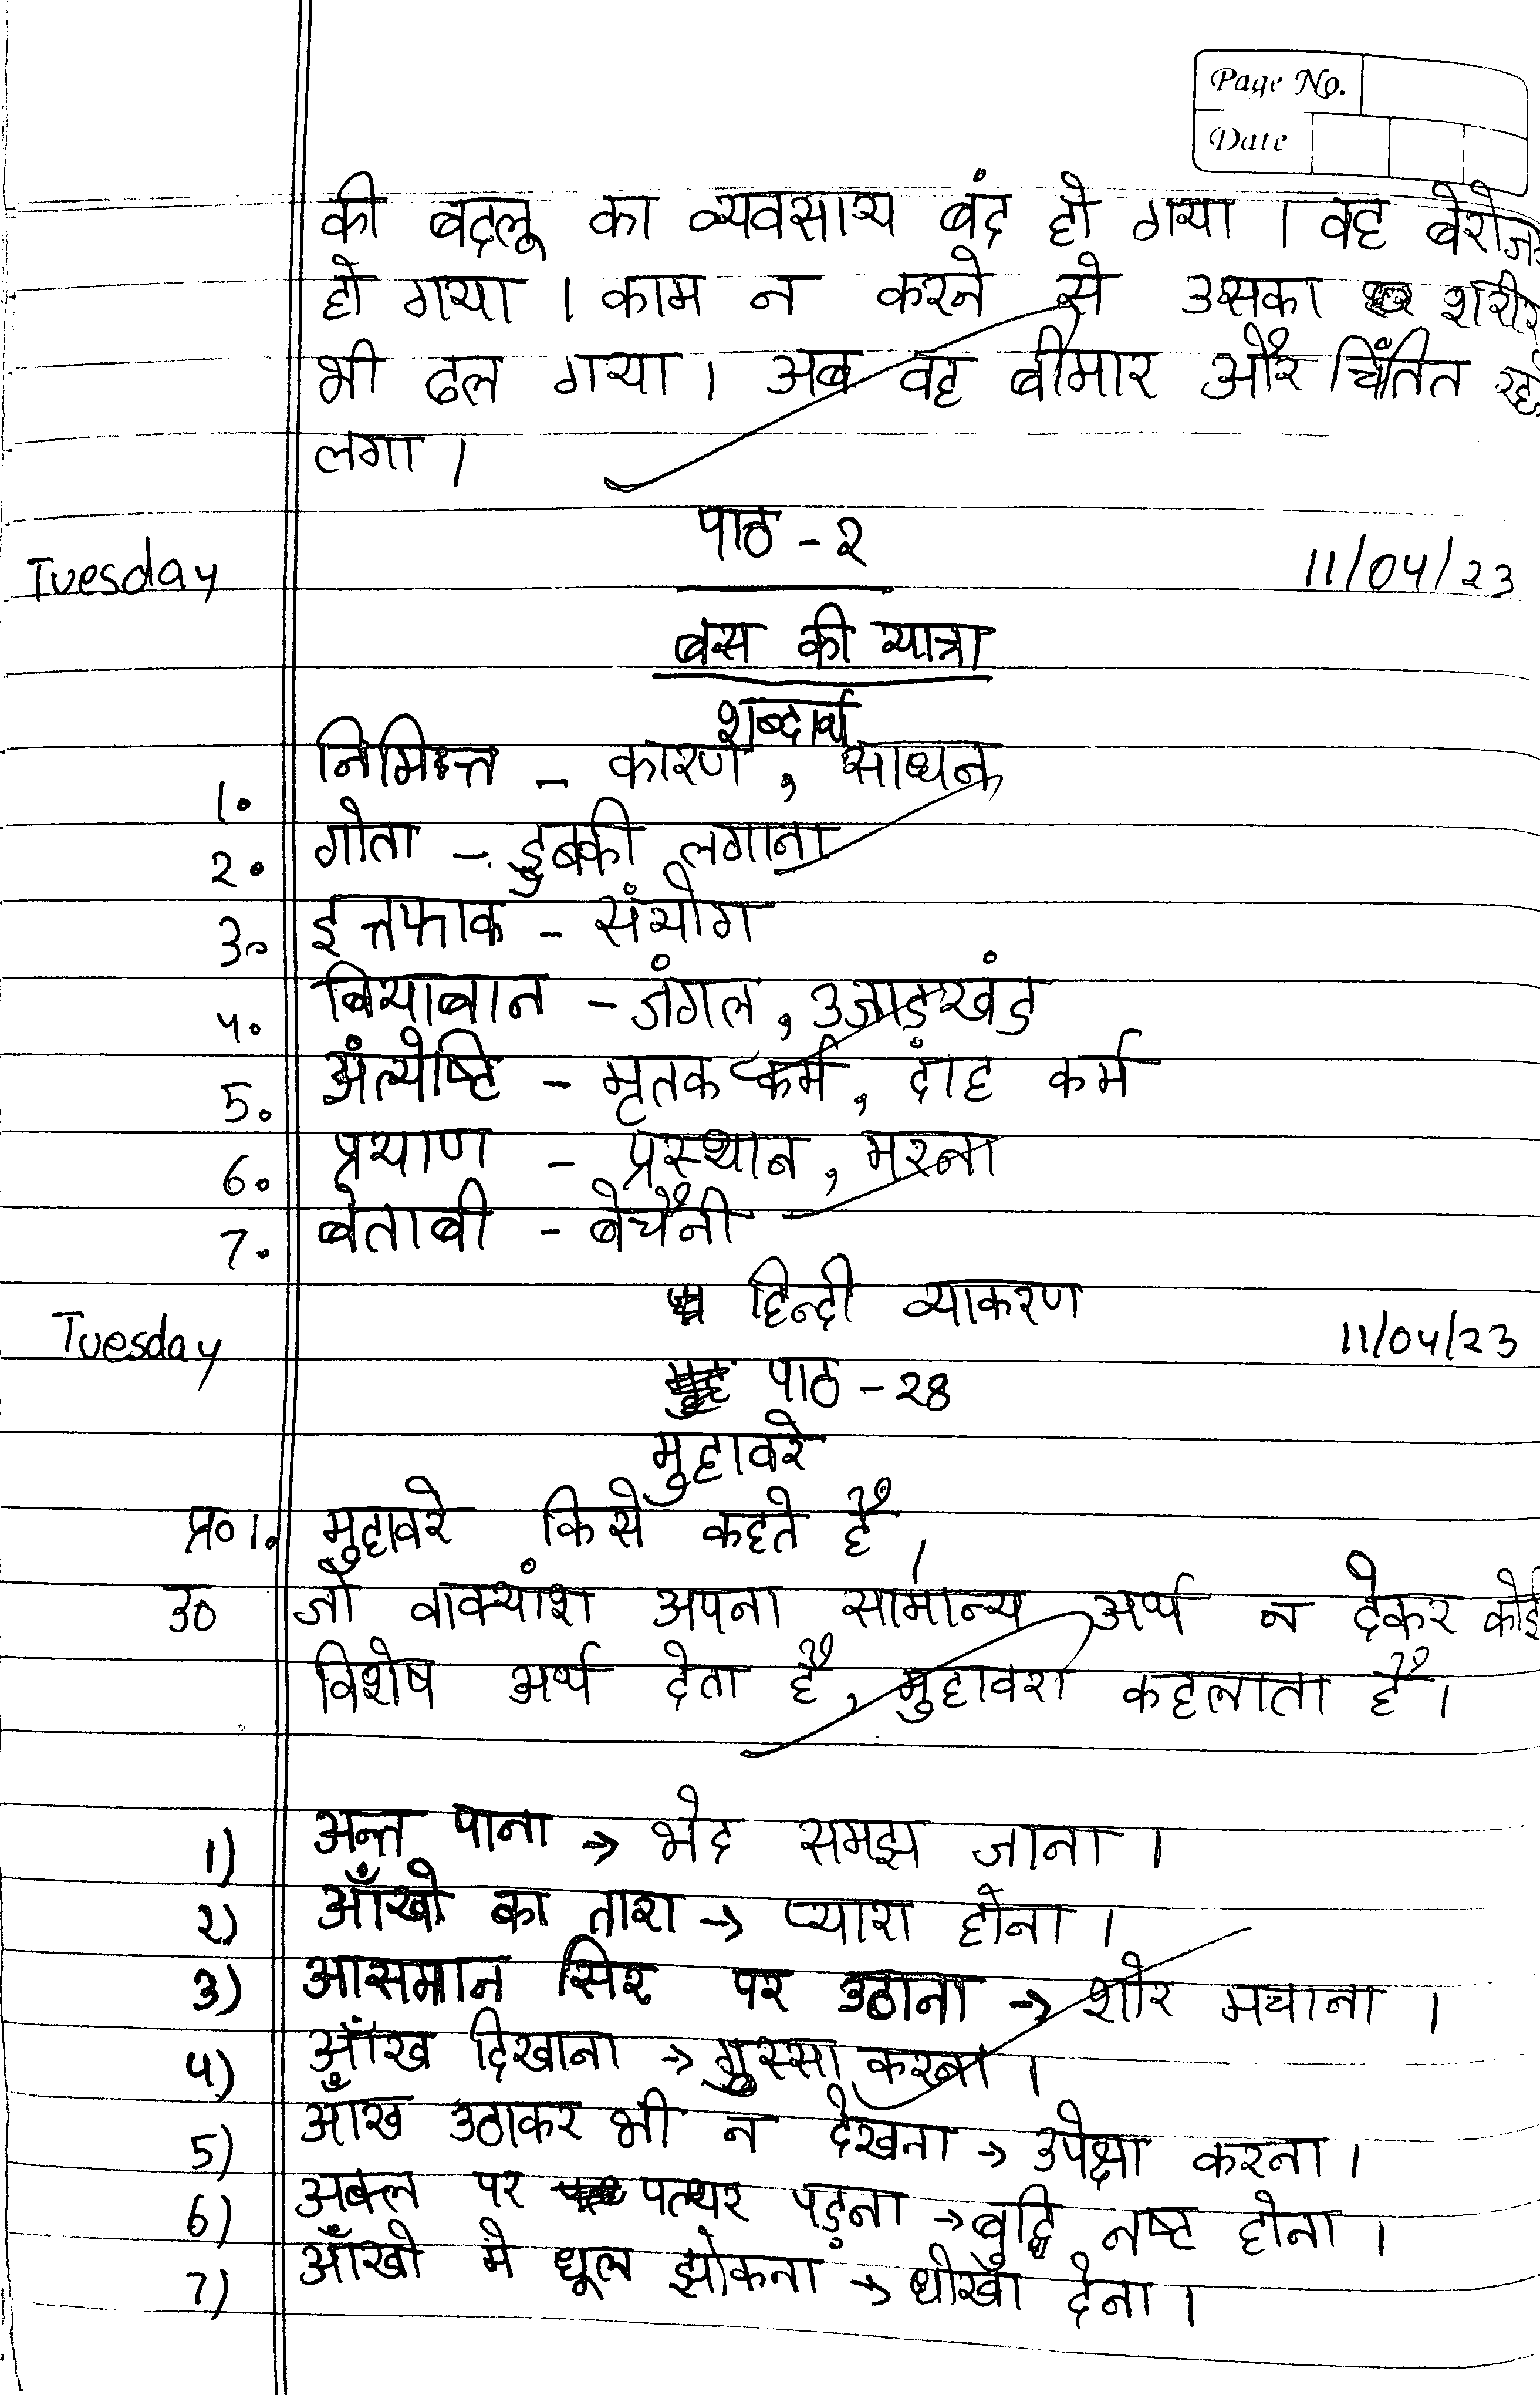 Page No.
Date
की बदलू का व्यवसाय बंद हो गया । वह
हो गया । काम न करने से उसका शरीर
भी ढल गया । अब वह बीमार और चिंतित
लगा ।
पाठ - २
Tuesday 11/04/23
बस की यात्रा
शब्दार्थ
1. निमित्त - कारण, साधन
2. गोता - डुबकी लगाना
3. इत्तफाक - संयोग
4. बियाबान - जंगल, उजाड़खंड
5. अंत्येष्टि - मृतक कर्म, दाह कर्म
6. प्रयाण - प्रस्थान, मरना
7. बेताबी - बेचैनी
हिन्दी व्याकरण
Tuesday 11/04/23
पाठ - २8
मुहावरे
प्र०1. मुहावरे किसे कहते हैं ।
उ० जो वाक्यांश अपना सामान्य अर्थ न देकर कोई
विशेष अर्थ देता है, मुहावरा कहलाता हैं ।
1) अन्त पाना → भेद समझ जाना ।
2) आँखो का तारा → प्यारा होना ।
3) आसमान सिर पर उठाना → शोर मचाना ।
4) आँख दिखाना → गुस्सा करना ।
5) आँख उठाकर भी न देखना → उपेक्षा करना ।
6) अक्ल पर पत्थर पड़ना → बुद्धि नष्ट होना ।
7) आँखो मे धूल झोकना → धोखा देना ।